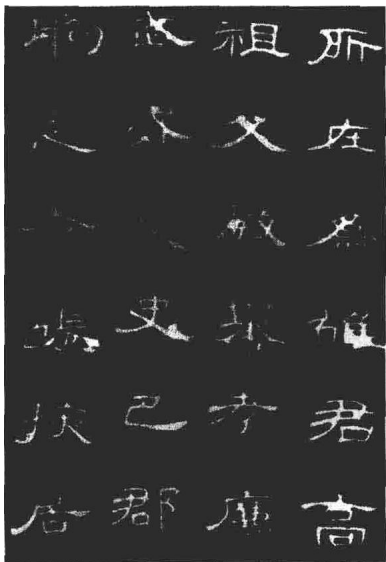 所在為雄君高
祖父敏舉孝廉
武威史巴郡
朐忍令張掖居